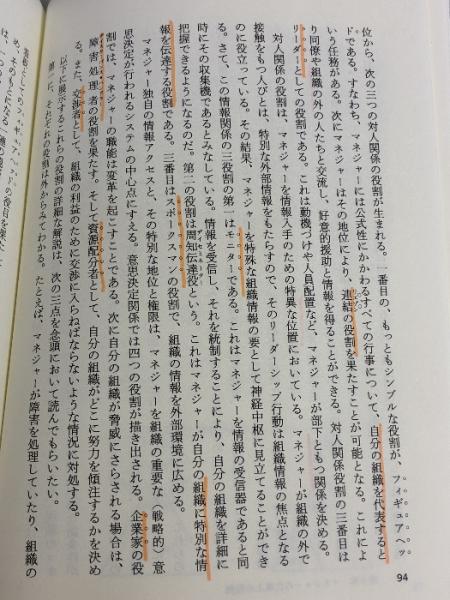 位から、次の三つの対人関係の役割が生まれる。一番目の、もっともシンプルな役割が、フィギュアヘッ
ドである。すなわち、マネジャーには公式性にかかわるすべての行事について、自分の組織を代表すると
いう任務がある。次にマネジャーはその地位により、連結の役割を果たすことが可能となる。これによ
り同僚や組織の外の人たちと交流し、好意的援助と情報を得ることができる。対人関係役割の三番目は
リーダーとしての役割である。これは動機づけや人員配置など、マネジャーが部下ともつ関係を決める。
対人関係の役割は、マネジャーを情報入手のための特異な位置においている。マネジャーが組織の外で
接触をもつ人びとは、特別な外部情報をもたらすので、そのリーダーシップ行動は組織情報の焦点となる
のに役立っている。その結果、マネジャーを特殊な組織情報の要として神経中枢に見立てることができ
る。さて、この情報関係の三役割の第一はモニターである。これはマネジャーを情報の受信器であると同
時にその収集機であるとみなしている。情報を受信し、それを統制することにより、自分の組織を詳細に
把握できるようになるのだ。第二の役割は周知伝達役という。これはマネジャーが自分の組織に特別な情
報を伝達する役割である。三番目はスポークスマンの役割で、組織の情報を外部環境に広める。
マネジャー独自の情報アクセスと、その特別な地位と権限は、マネジャーを組織の重要な(戦略的)意
思決定が行われるシステムの中心点にすえる。意思決定関係では四つの役割が描き出される。企業家の役
割では、マネジャーの職能は変革を起こすことである。次に自分の組織が脅威にさらされる場合は、
障害処理者の役割を果たす。そして資源配分者として、自分の組織がどこに努力を傾注するかを決め
る。また、交渉者として、組織の利益のために交渉に入らねばならないような情況に対処する。
以下に展示するこれらの役割の詳細な解説は、次の三点を念頭において読んでもらいたい。
第一に、それぞれの役割は外からみてわかる。たとえば、マネジャーが障害を処理していたり、組織の
94